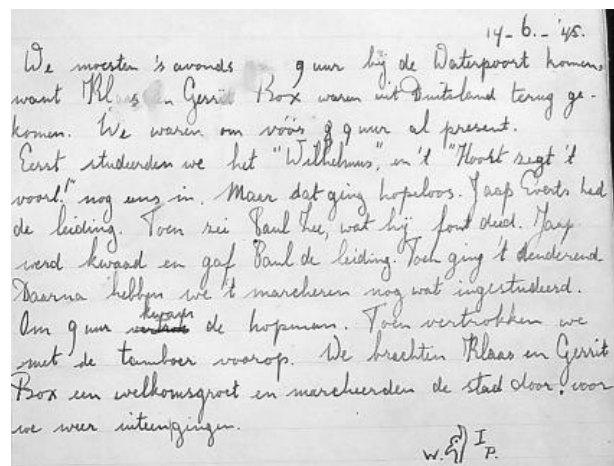 14-6.-'45.
We moesten 's avonds 9 uur bij de Waterpoort komen,
want Klaas en Gerrit Box waren uit Duitsland terug ge-
komen. We waren om vóór 9 uur al present.
Eerst studeerden we het "Wilhelmus", en 't "Hoort zegt 't
voort!" nog eens in. Maar dat ging hopeloos. Jaap Everts had
de leiding. Toen zei Paul Zee, wat hij fout deed. Jaap
werd kwaad en gaf Paul de leiding. Toen ging 't denderend
Daarna hebben we 't marcheren nog wat ingestudeerd.
Om 9 uur kwam de hopman. Toen vertrokken we
met de tamboer voorop. We brachten Klaas en Gerrit
Box een welkomsgroet en marcheerden de stad door, voor
we weer uiteengingen.
W. I
P.